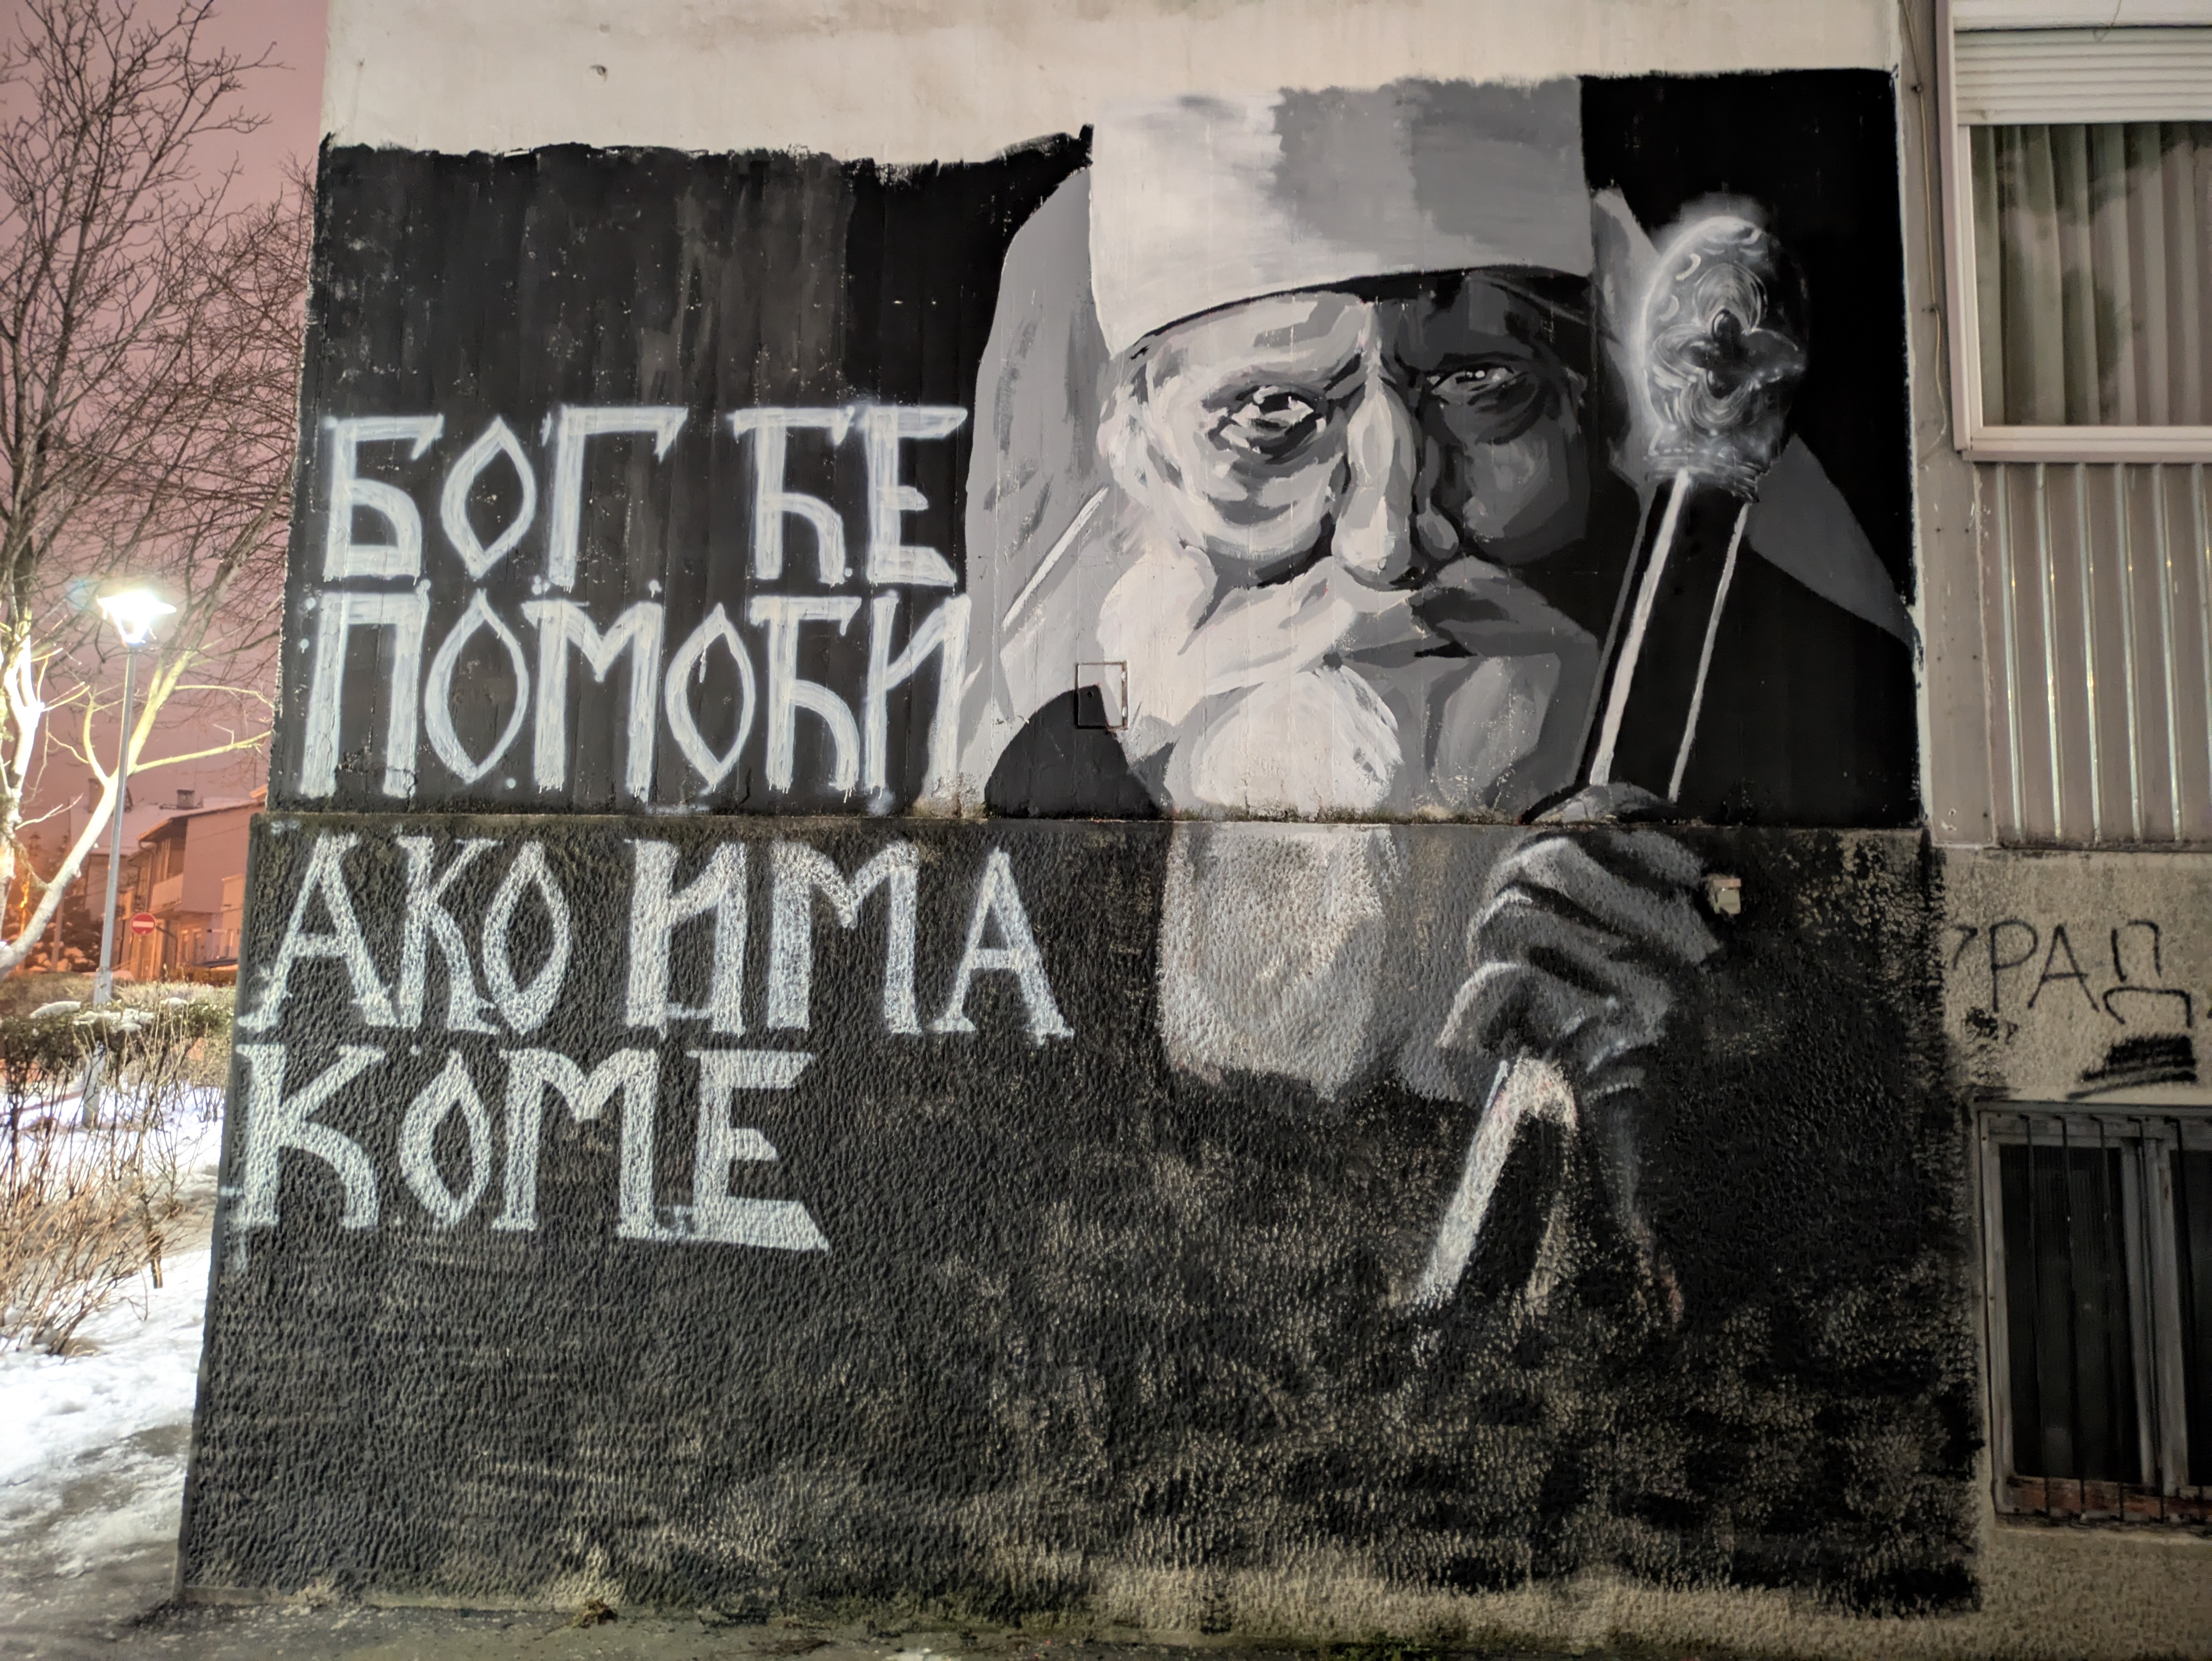 БОГ ЋЕ
ПОМОЋИ
АКО ИМА
КОМЕ
РАД